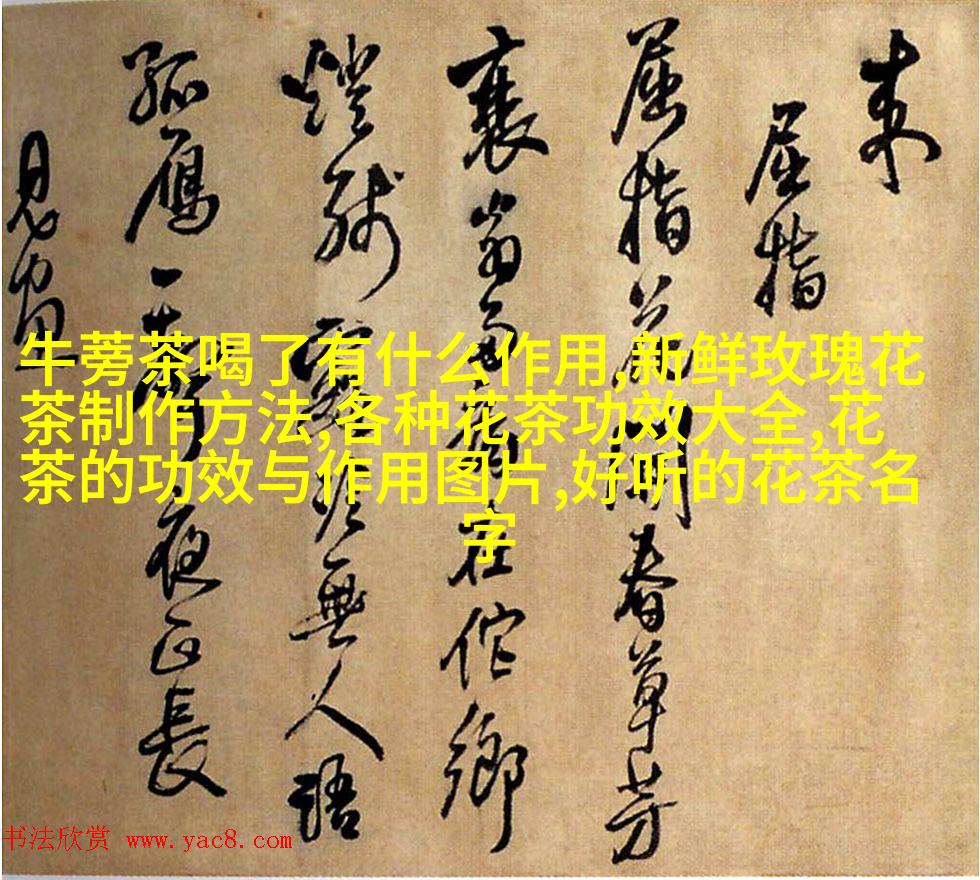 屈指
屈指春草芳
衰翁多在佗鄉
燈殘無人語
孤鴈一夜正長
牛蒡茶喝了有什么作用,新鲜玫瑰花
茶制作方法,各种花茶功效大全,花
茶的功效与作用图片,好听的花茶名
字
书法欣赏 www.yac8.com